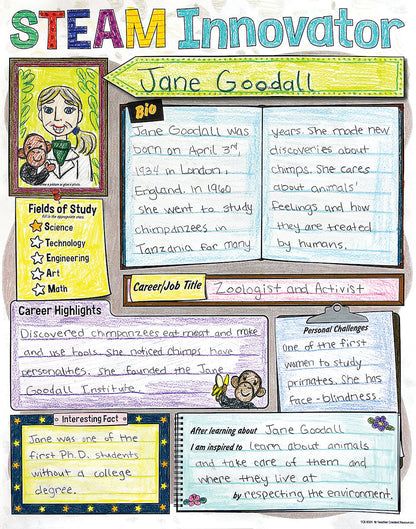 STEAM Innovator
Jane Goodall
Bio
Jane Goodall was
born on April 3rd,
1934 in London,
England. In 1960
she went to study
chimpanzees in
Tanzania for many
years. She made new
discoveries about
chimps. She cares
about animals'
feelings and how
they are treated
by humans.
Draw a picture or glue a photo.
Fields of Study
Fill in the appropriate stars.
Science
Technology
Engineering
Art
Math
Career/Job Title Zoologist and Activist
Career Highlights
Discovered chimpanzees eat meat and make
and use tools. She noticed chimps have
personalities. She founded the Jane
Goodall Institute.
Personal Challenges
One of the first
women to study
primates. She has
face-blindness.
Interesting Fact
Jane was one of the
first Ph.D. students
without a college
degree.
After learning about Jane Goodall
I am inspired to learn about animals
and take care of them and
where they live at
by respecting the environment.
©Teacher Created Resources